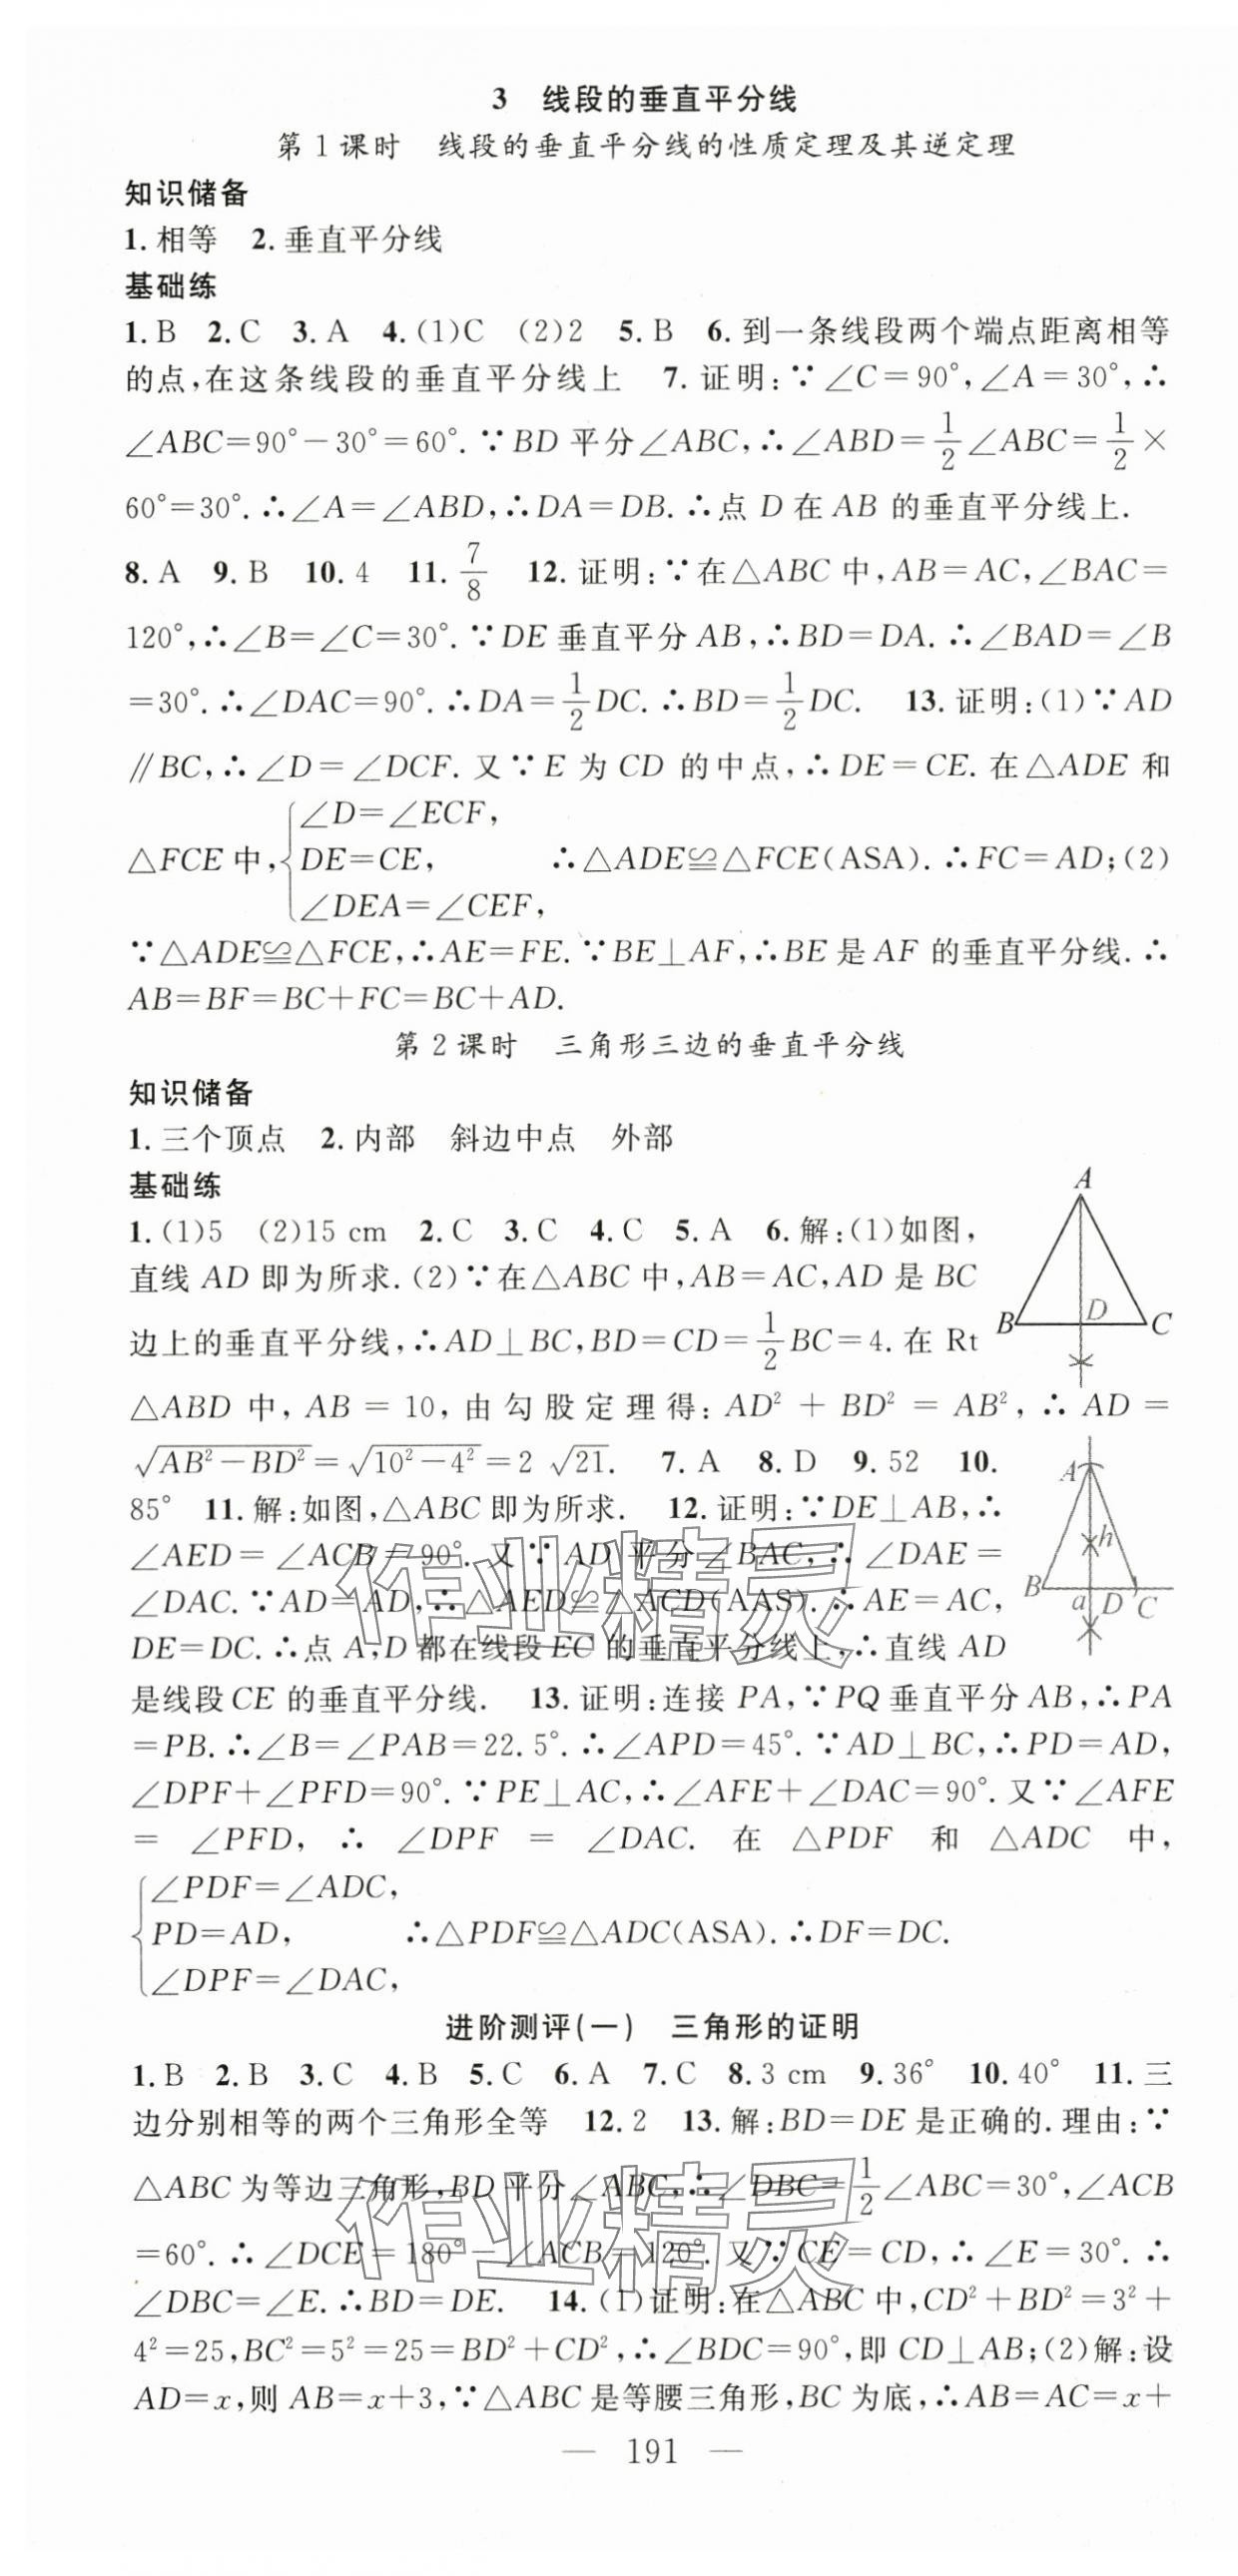 3 线段的垂直平分线
第1课时 线段的垂直平分线的性质定理及其逆定理
知识储备
1.相等 2.垂直平分线
基础练
1.B 2.C 3.A 4.(1)C (2)2 5.B 6.到一条线段两个端点距离相等
的点,在这条线段的垂直平分线上 7.证明:∵∠C=90°,∠A=30°,∴
∠ABC=90°-30°=60°.∵BD平分∠ABC,∴∠ABD=1/2∠ABC=1/2×
60°=30°.∴∠A=∠ABD,∴DA=DB.∴点D在AB的垂直平分线上.
8.A 9.B 10.4 11.7/8 12.证明:∵在△ABC中,AB=AC,∠BAC=
120°,∴∠B=∠C=30°.∵DE垂直平分AB,∴BD=DA.∴∠BAD=∠B
=30°.∴∠DAC=90°.∴DA=1/2DC.∴BD=1/2DC. 13.证明:(1)∵AD
∥BC,∴∠D=∠DCF.又∵E为CD的中点,∴DE=CE.在△ADE和
△FCE中,{∠D=∠ECF,
DE=CE, ∴△ADE≌△FCE(ASA).∴FC=AD;(2)
∠DEA=∠CEF,
∵△ADE≌△FCE,∴AE=FE.∵BE⊥AF,∴BE是AF的垂直平分线.∴
AB=BF=BC+FC=BC+AD.
第2课时 三角形三边的垂直平分线
知识储备
1.三个顶点 2.内部 斜边中点 外部
基础练
1.(1)5 (2)15 cm 2.C 3.C 4.C 5.A 6.解:(1)如图,
直线AD即为所求.(2)∵在△ABC中,AB=AC,AD是BC
边上的垂直平分线,∴AD⊥BC,BD=CD=1/2BC=4.在Rt
△ABD中,AB=10,由勾股定理得:AD²+BD²=AB²,∴AD=
√(AB²-BD²)=√(10²-4²)=2√21. 7.A 8.D 9.52 10.
85° 11.解:如图,△ABC即为所求. 12.证明:∵DE⊥AB,∴
∠AED=∠ACB=90°.又∵AD平分∠BAC,∴∠DAE=
∠DAC.∵AD=AD,∴△AED≌△ACD(AAS).∴AE=AC,
DE=DC.∴点A,D都在线段EC的垂直平分线上,∴直线AD
是线段CE的垂直平分线. 13.证明:连接PA,∵PQ垂直平分AB,∴PA
=PB.∴∠B=∠PAB=22.5°.∴∠APD=45°.∵AD⊥BC,∴PD=AD,
∠DPF+∠PFD=90°.∵PE⊥AC,∴∠AFE+∠DAC=90°.又∵∠AFE
=∠PFD,∴∠DPF=∠DAC.在△PDF和△ADC中,
{∠PDF=∠ADC,
PD=AD, ∴△PDF≌△ADC(ASA).∴DF=DC.
∠DPF=∠DAC,
A
B
D
C
A
h
B
a
D
C
进阶测评(一) 三角形的证明
1.B 2.B 3.C 4.B 5.C 6.A 7.C 8.3 cm 9.36° 10.40° 11.三
边分别相等的两个三角形全等 12.2 13.解:BD=DE是正确的.理由:∵
△ABC为等边三角形,BD平分∠ABC,∴∠DBC=1/2∠ABC=30°,∠ACB
=60°.∴∠DCE=180°-∠ACB=120°.又∵CE=CD,∴∠E=30°.∴
∠DBC=∠E.∴BD=DE. 14.(1)证明:在△ABC中,CD²+BD²=3²+
4²=25,BC²=5²=25=BD²+CD²,∴∠BDC=90°,即CD⊥AB;(2)解:设
AD=x,则AB=x+3,∵△ABC是等腰三角形,BC为底,∴AB=AC=x+
— 191 —
作业精灵
作业精灵